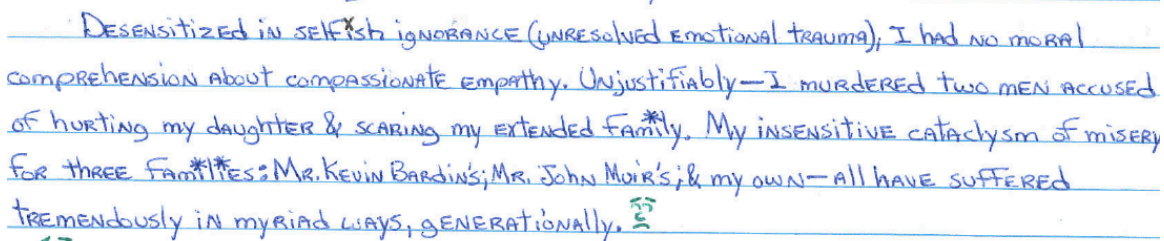 Desensitized in selfish ignorance (unresolved emotional trauma), I had no moral
comprehension about compassionate empathy. Unjustifiably—I murdered two men accused
of hurting my daughter & scaring my extended family. My insensitive cataclysm of misery
for three families: Mr. Kevin Bardin's; Mr. John Muir's; & my own—all have suffered
tremendously in myriad ways, generationally.